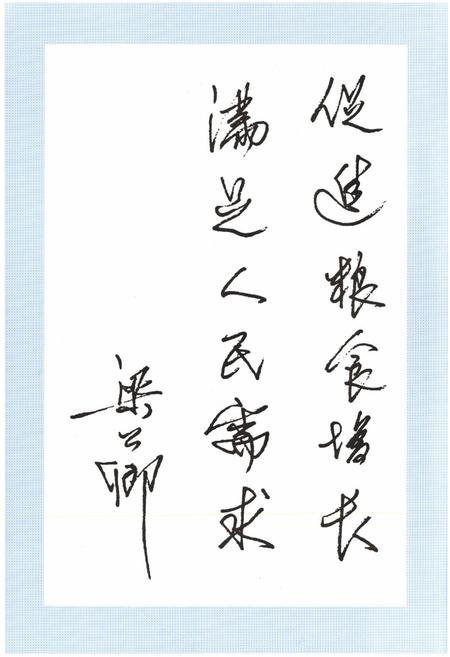 促进粮食增长
满足人民需求
梁公卿